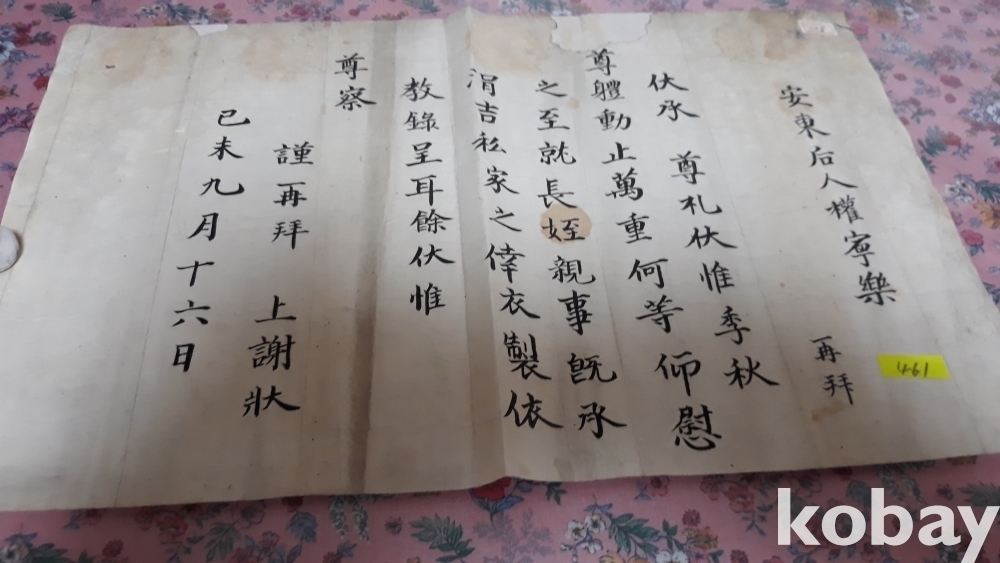 安東后人權寧樂 再拜
伏承 尊札伏惟季秋
尊體動止萬重何等仰慰
之至就長姪親事旣承
涓吉私家之倖衣製依
教錄呈耳餘伏惟
尊察
謹再拜 上謝狀
己未九月十六日
461
kobay